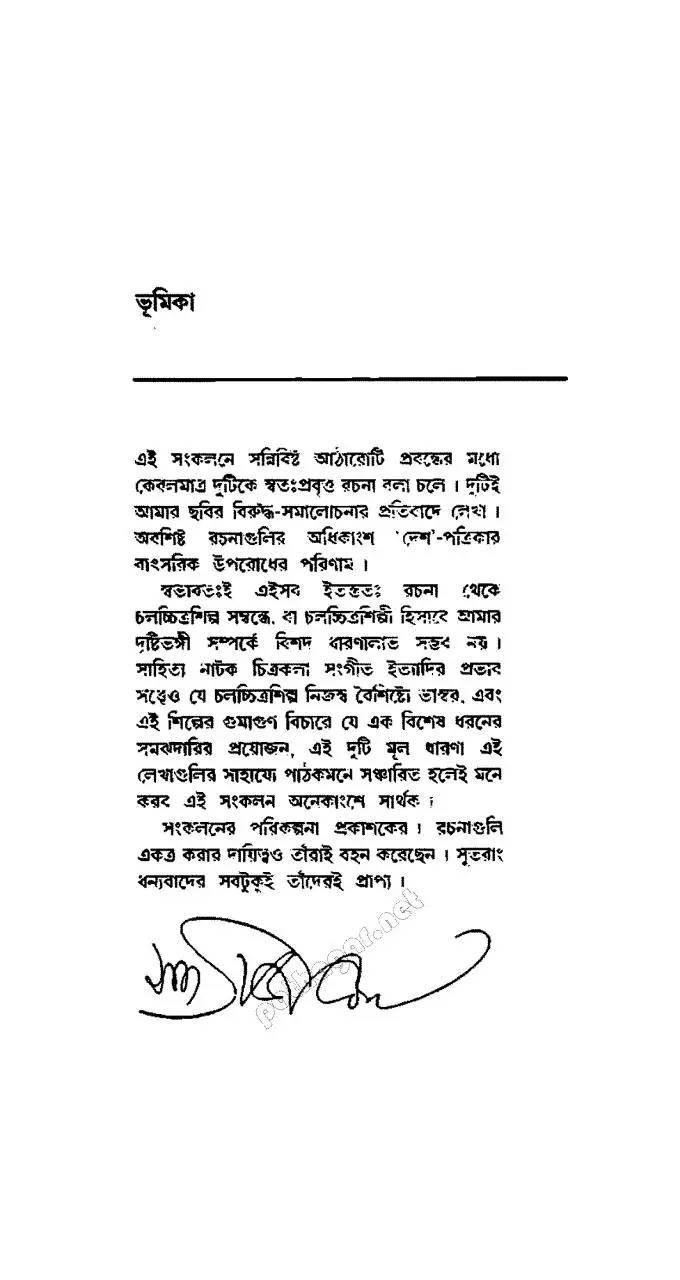 ভূমিকা
এই সংকলনে সন্নিবিষ্ট আঠারোটি প্রবন্ধের মধ্যে
কেবলমাত্র দুটিকে স্বতঃপ্রবৃত্ত রচনা বলা চলে । দুটিই
আমার ছবির বিরুদ্ধ-সমালোচনার প্রতিবাদে লেখা ।
অবশিষ্ট রচনাগুলির অধিকাংশ 'দেশ'-পত্রিকার
বাৎসরিক উপরোধের পরিণাম ।
স্বভাবতঃই এইসব ইতস্ততঃ রচনা থেকে
চলচ্চিত্রশিল্প সম্বন্ধে, বা চলচ্চিত্রশিল্পী হিসাবে আমার
দৃষ্টিভঙ্গী সম্পর্কে বিশদ ধারণালাভ সম্ভব নয় ।
সাহিত্য নাটক চিত্রকলা সংগীত ইত্যাদির প্রভাব
সত্ত্বেও যে চলচ্চিত্রশিল্প নিজস্ব বৈশিষ্ট্যে ভাস্বর, এবং
এই শিল্পের গুণাগুণ বিচারে যে এক বিশেষ ধরনের
সমঝদারির প্রয়োজন, এই দুটি মূল ধারণা এই
লেখাগুলির সাহায্যে পাঠকমনে সঞ্চারিত হলেই মনে
করব এই সংকলন অনেকাংশে সার্থক ।
সংকলনের পরিকল্পনা প্রকাশকের । রচনাগুলি
একত্র করার দায়িত্বও তাঁরাই বহন করেছেন । সুতরাং
ধন্যবাদের সবটুকুই তাঁদেরই প্রাপ্য ।
pathagar.net